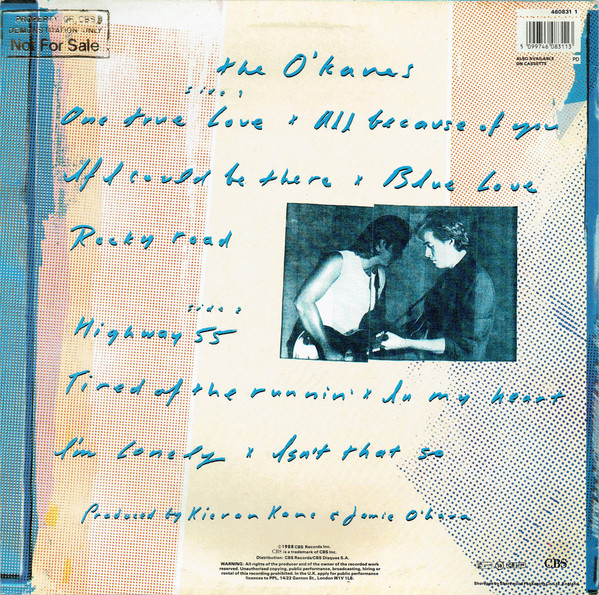 PROPERTY OF CBS
DEMONSTRATION ONLY
Not For Sale
460831 1
5 099746 083113
ALSO AVAILABLE
ON CASSETTE
PD
the O'Kanes
side 1
One true Love x All because of you
If I could be there x Blue Love
Rocky road
side 2
Highway 55
Tired of the runnin' x In my heart
I'm lonely x Isn't that so
Produced by Kieran Kane & Jamie O'hara
©1988 CBS Records Inc.
CBS is a trademark of CBS Inc.
Distribution: CBS Records/CBS Disques S.A.
WARNING: All rights of the producer and of the owner of the recorded work
reserved. Unauthorised copying, public performance, broadcasting, hiring or
rental of this recording prohibited. In the U.K. apply for public performance
licences to PPL, 14/22 Ganton St., London W1V 1LB.
CBS